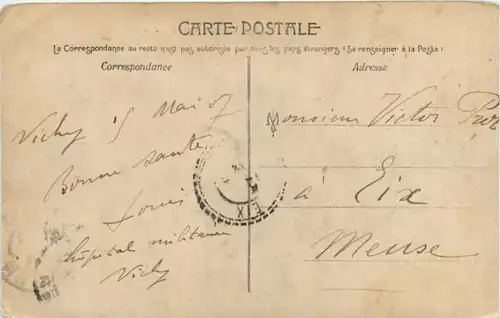 CARTE POSTALE
La Correspondance au recto n'est pas autorisée par tous les pays étrangers (Se renseigner à la Poste)
Correspondance
Adresse
Vichy 5 Mai 07
Bonne santé
Louis
hôpital militaire
Vichy
Monsieur Victor
à Eix
Meuse
EIX